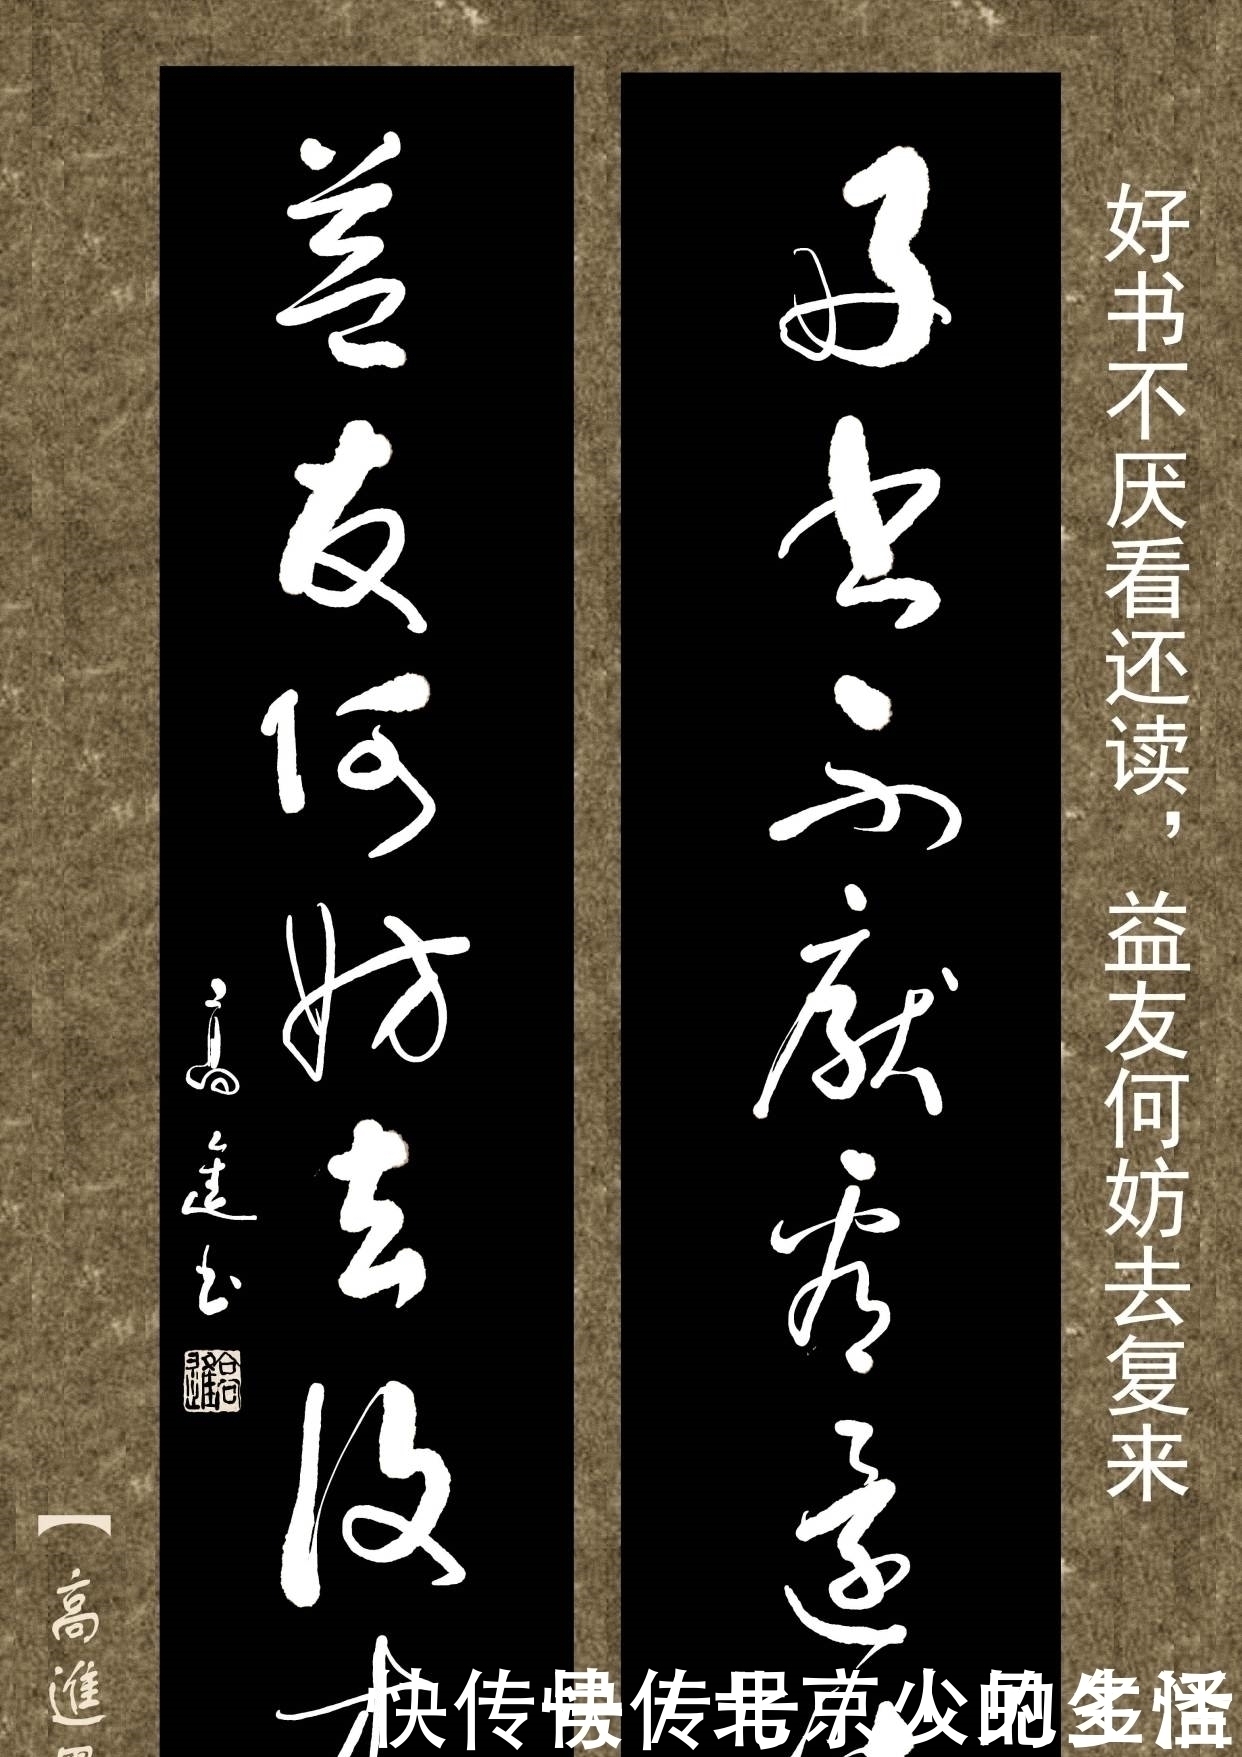 好书不厌看还读，益友何妨去复来
好书不厌看还
益友何妨去復来
高進书
【高進